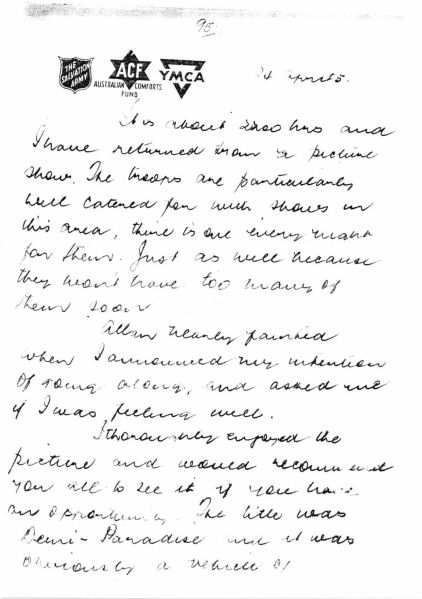 95.
THE SALVATION ARMY
ACF
AUSTRALIAN COMFORTS FUND
YMCA
24 April 5.
It is about 2200 hrs and
I have returned from a picture
show. The troops are particularly
well catered for with shows in
this area, there is one every night
for them. Just as well because
they won't have too many of
them soon
Allan nearly fainted
when I announced my intention
of going along, and asked me
if I was feeling well.
I thoroughly enjoyed the
picture and would recommend
you all to see it if you have
an opportunity. The title was
Demi-Paradise and it was
obviously a vehicle of